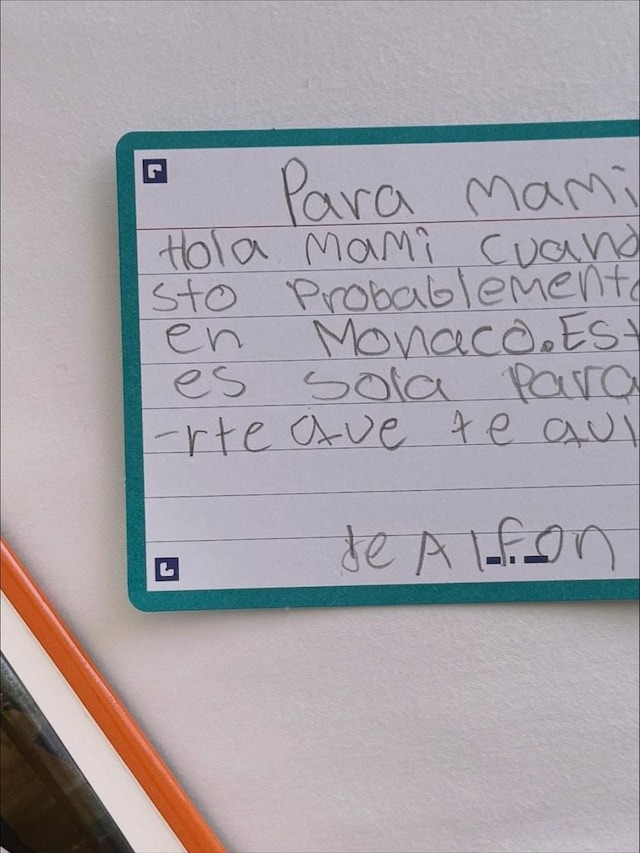 Para Mami
Hola Mami cuando
sto Probablemente
en Monaco. Est
es sola para
-rte que te qui
de Alfon